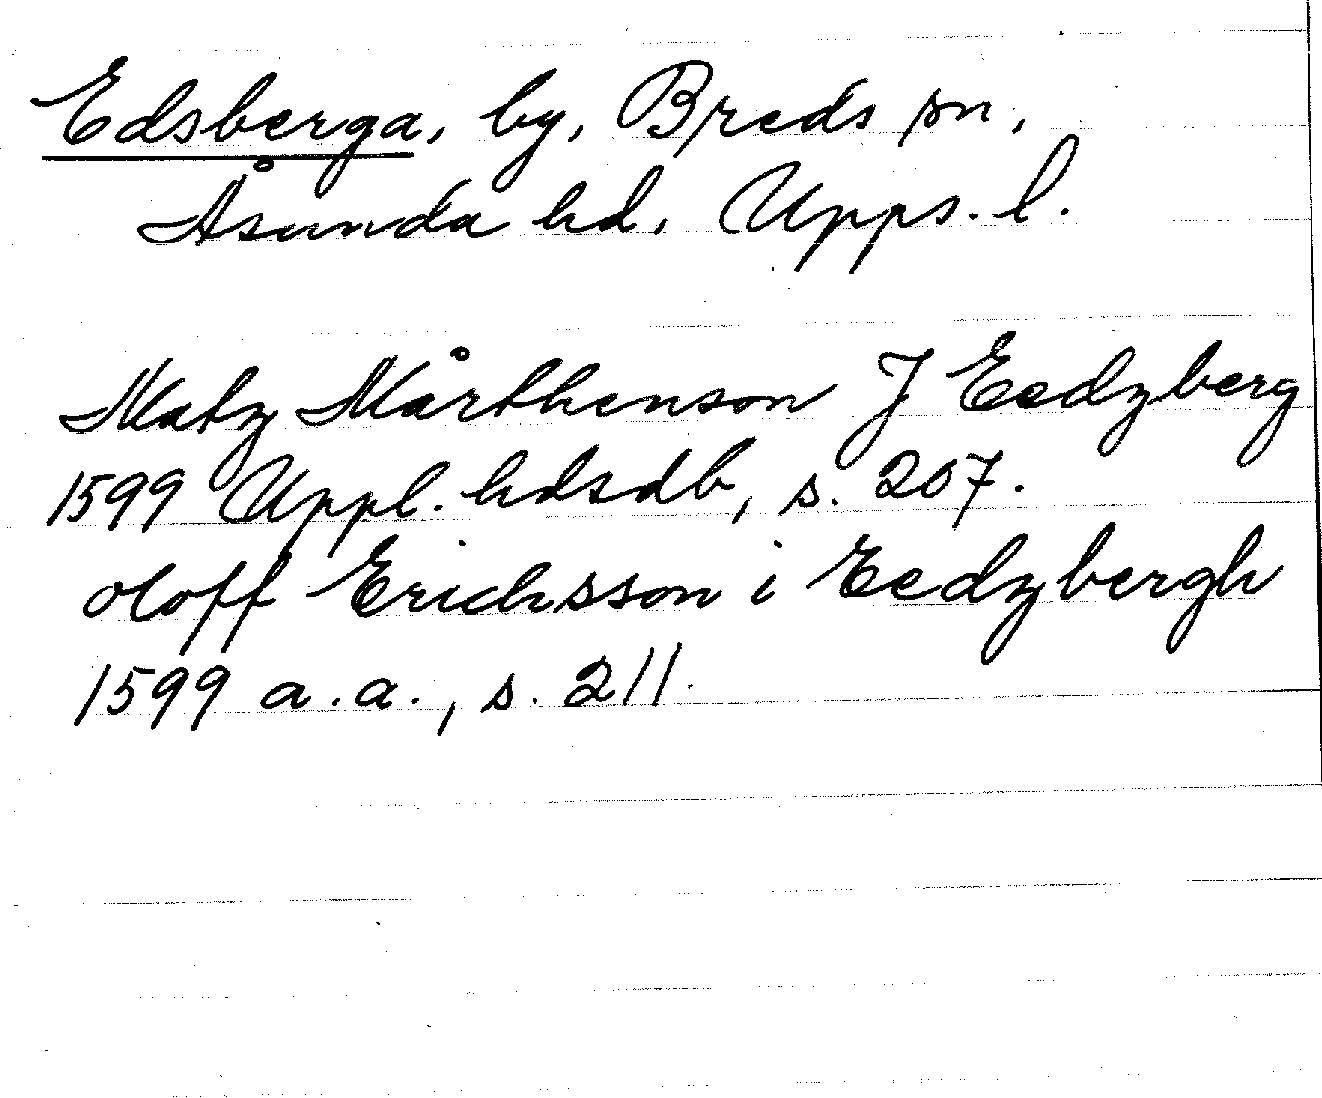 Edsberga, by, Breds sn,
Åsunda hd, Upps. l.
Matz Mårthenson J Eedzberg
1599 Uppl. hdsdb, s. 207.
Oloff Erichsson i Eedzbergh
1599 a.a., s. 211.